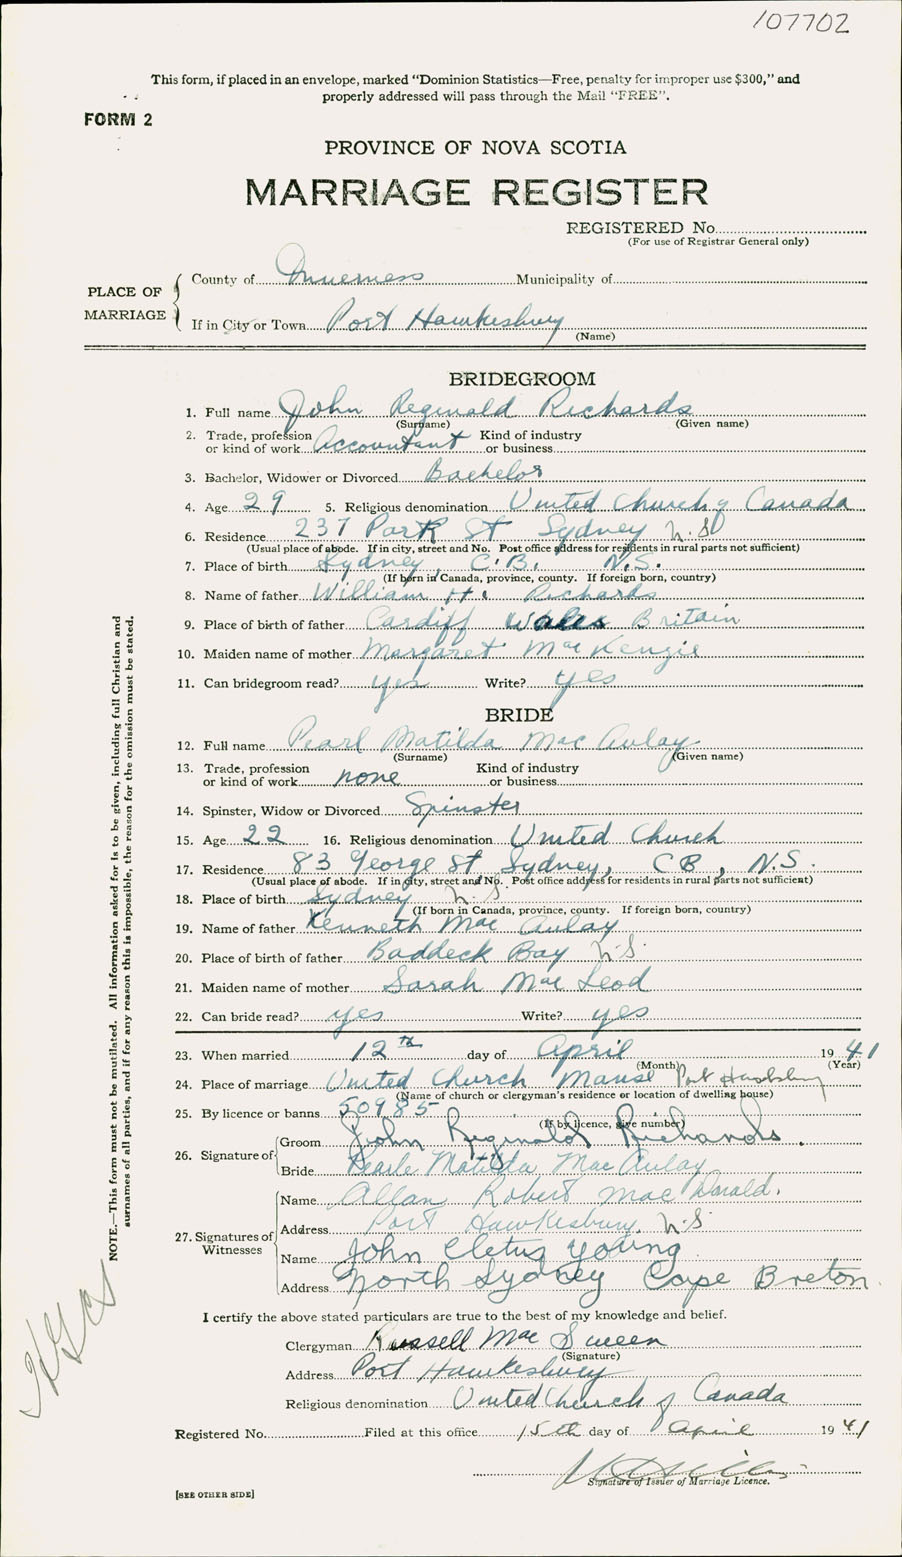 107702
This form, if placed in an envelope, marked "Dominion Statistics—Free, penalty for improper use $300," and
properly addressed will pass through the Mail "FREE".
FORM 2
PROVINCE OF NOVA SCOTIA
MARRIAGE REGISTER
REGISTERED No.
(For use of Registrar General only)
PLACE OF MARRIAGE
County of Inverness Municipality of
If in City or Town Port Hawkesbury
(Name)
BRIDEGROOM
1. Full name John Reginald Richards
(Surname) (Given name)
2. Trade, profession or kind of work Accountant Kind of industry or business
3. Bachelor, Widower or Divorced Bachelor
4. Age 29 5. Religious denomination United Church of Canada
6. Residence 237 Park St Sydney N.S
(Usual place of abode. If in city, street and No. Post office address for residents in rural parts not sufficient)
7. Place of birth Sydney, C.B. N.S.
(If born in Canada, province, county. If foreign born, country)
8. Name of father William H. Richards
9. Place of birth of father Cardiff Wales Britain
10. Maiden name of mother Margaret MacKenzie
11. Can bridegroom read? yes Write? yes
BRIDE
12. Full name Pearl Matilda Mac Aulay
(Surname) (Given name)
13. Trade, profession or kind of work none Kind of industry or business
14. Spinster, Widow or Divorced Spinster
15. Age 22 16. Religious denomination United Church
17. Residence 83 George St Sydney, CB, N.S.
(Usual place of abode. If in city, street and No. Post office address for residents in rural parts not sufficient)
18. Place of birth Sydney N.S
(If born in Canada, province, county. If foreign born, country)
19. Name of father Kenneth Mac Aulay
20. Place of birth of father Baddeck Bay N.S.
21. Maiden name of mother Sarah Mac Leod
22. Can bride read? yes Write? yes
23. When married 12th day of April 1941
(Month) (Year)
24. Place of marriage United Church Manse Port Hawkesbury
(Name of church or clergyman's residence or location of dwelling house)
25. By licence or banns 50985
(If by licence, give number)
26. Signature of
Groom John Reginald Richards.
Bride Pearle Matilda MacAulay
27. Signatures of Witnesses
Name Allan Robert MacDonald.
Address Port Hawkesbury, N.S
Name John Cletus Young
Address North Sydney Cape Breton.
I certify the above stated particulars are true to the best of my knowledge and belief.
Clergyman Russell Mac Sween
(Signature)
Address Port Hawkesbury
Religious denomination United Church of Canada
Registered No. Filed at this office 15th day of April 1941
Signature of Issuer of Marriage Licence.
[SEE OTHER SIDE]
NOTE.—This form must not be mutilated. All information asked for is to be given, including full Christian and
surnames of all parties, and if for any reason this is impossible, the reason for the omission must be stated.